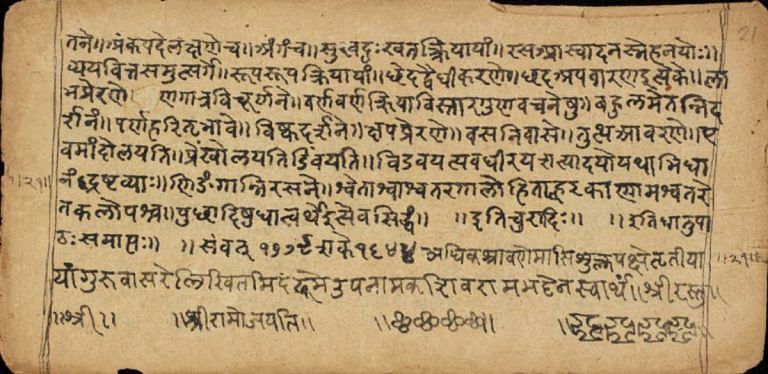 तने॥अंकपदेलक्षणेच॥अंगच॥सुखदुःखतत्क्रियायां॥रसआस्वादनस्नेहनयोः॥
व्ययवित्तसमुत्सर्गे॥रूपरूपक्रियायां॥छेदद्वैधीकरणे॥छदअपवारणइत्येके॥ला
भप्रेरणे॥ व्रणगात्रविचूर्णने॥वर्णवर्णक्रियाविस्तारगुणवचनेषु॥बहुलमेतन्निद
र्शनं॥पर्णहरितभावे॥विष्कदर्शने॥क्षपप्रेरणे॥वसनिवासे॥तुत्थआवरणे॥ए
वमांदोलयति॥प्रेंखोलयतिविडंबयति॥विडवयत्यवधीरयत्यादयोयथाभिधा
नंद्रष्टव्याः॥णिङंगान्निरसने॥श्वेताश्वाश्वतरगालोडिताह्वरकाणामश्वतरे
तकलोपश्च॥पुच्छादिषुधात्वर्थइत्येवसिद्धं॥ ॥इतिचुरादिः॥ ॥इतिधातुपा
ठःसमाप्तः॥ ॥संवत् १७७९शके१६४४ अधिकश्रावणेमासिशुक्लपक्षेतृतीया
यांगुरुवासरेलिखितमिदं उपनामकशिवरामभट्टेनस्वार्थं॥श्रीरस्तु॥
॥श्री॥ ॥श्रीरामोजयति॥